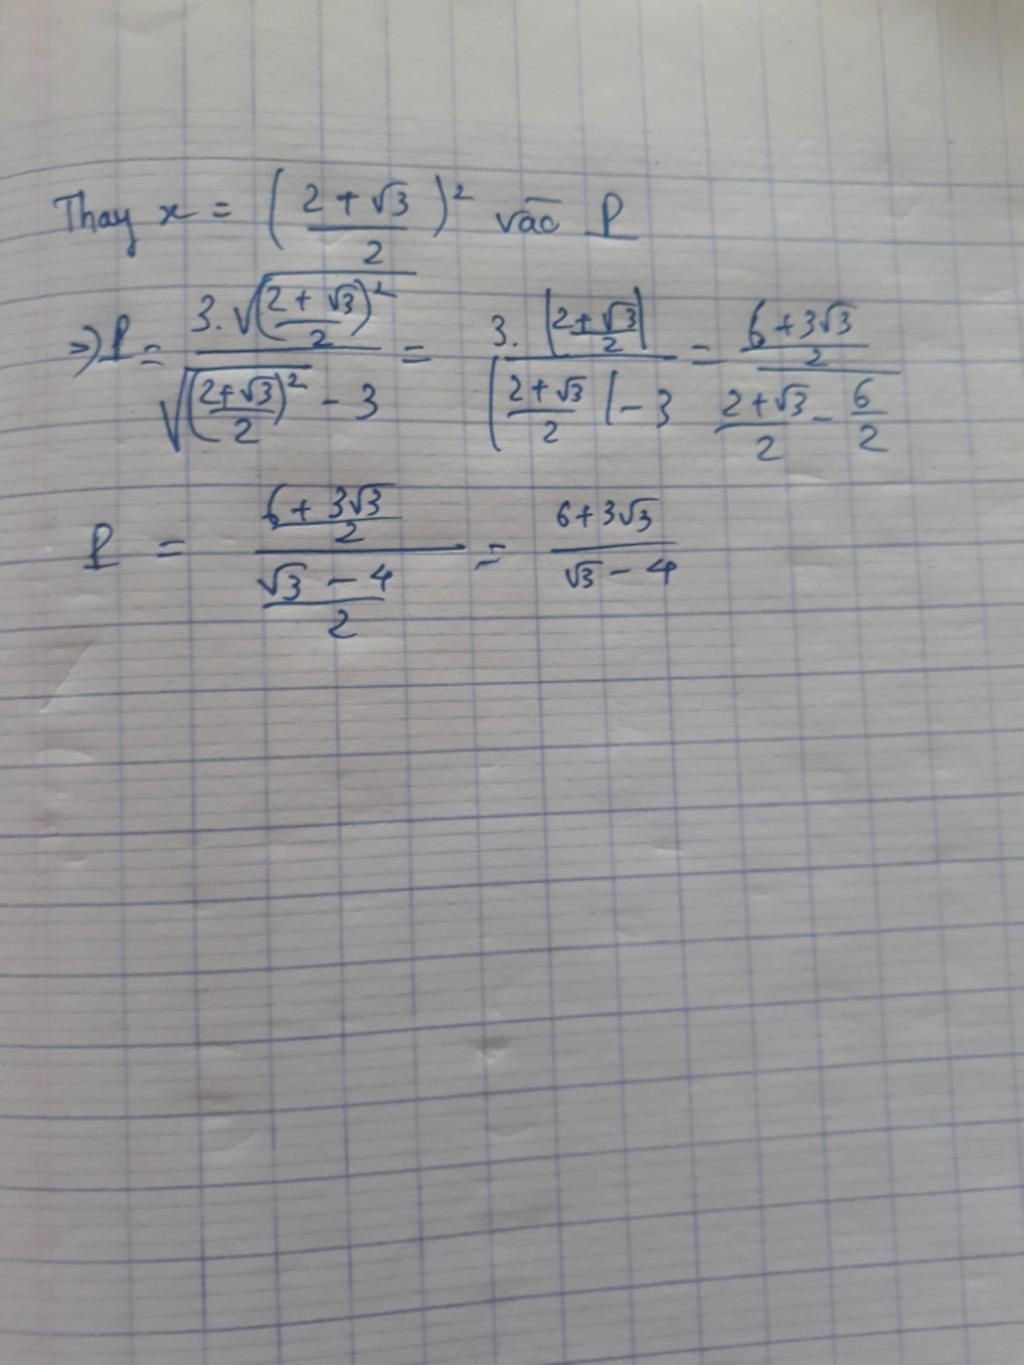 Thay x = ( (2 + √3)/2 )² vào P
⇒ P = (3.√((2 + √3)/2)²) / (√((2+√3)/2)² - 3) = (3. |(2+√3)/2|) / (|(2+√3)/2| - 3) = ((6+3√3)/2) / ((2+√3)/2 - 6/2)
P = ((6 + 3√3)/2) / ((√3 - 4)/2) = (6+3√3)/(√3 - 4)